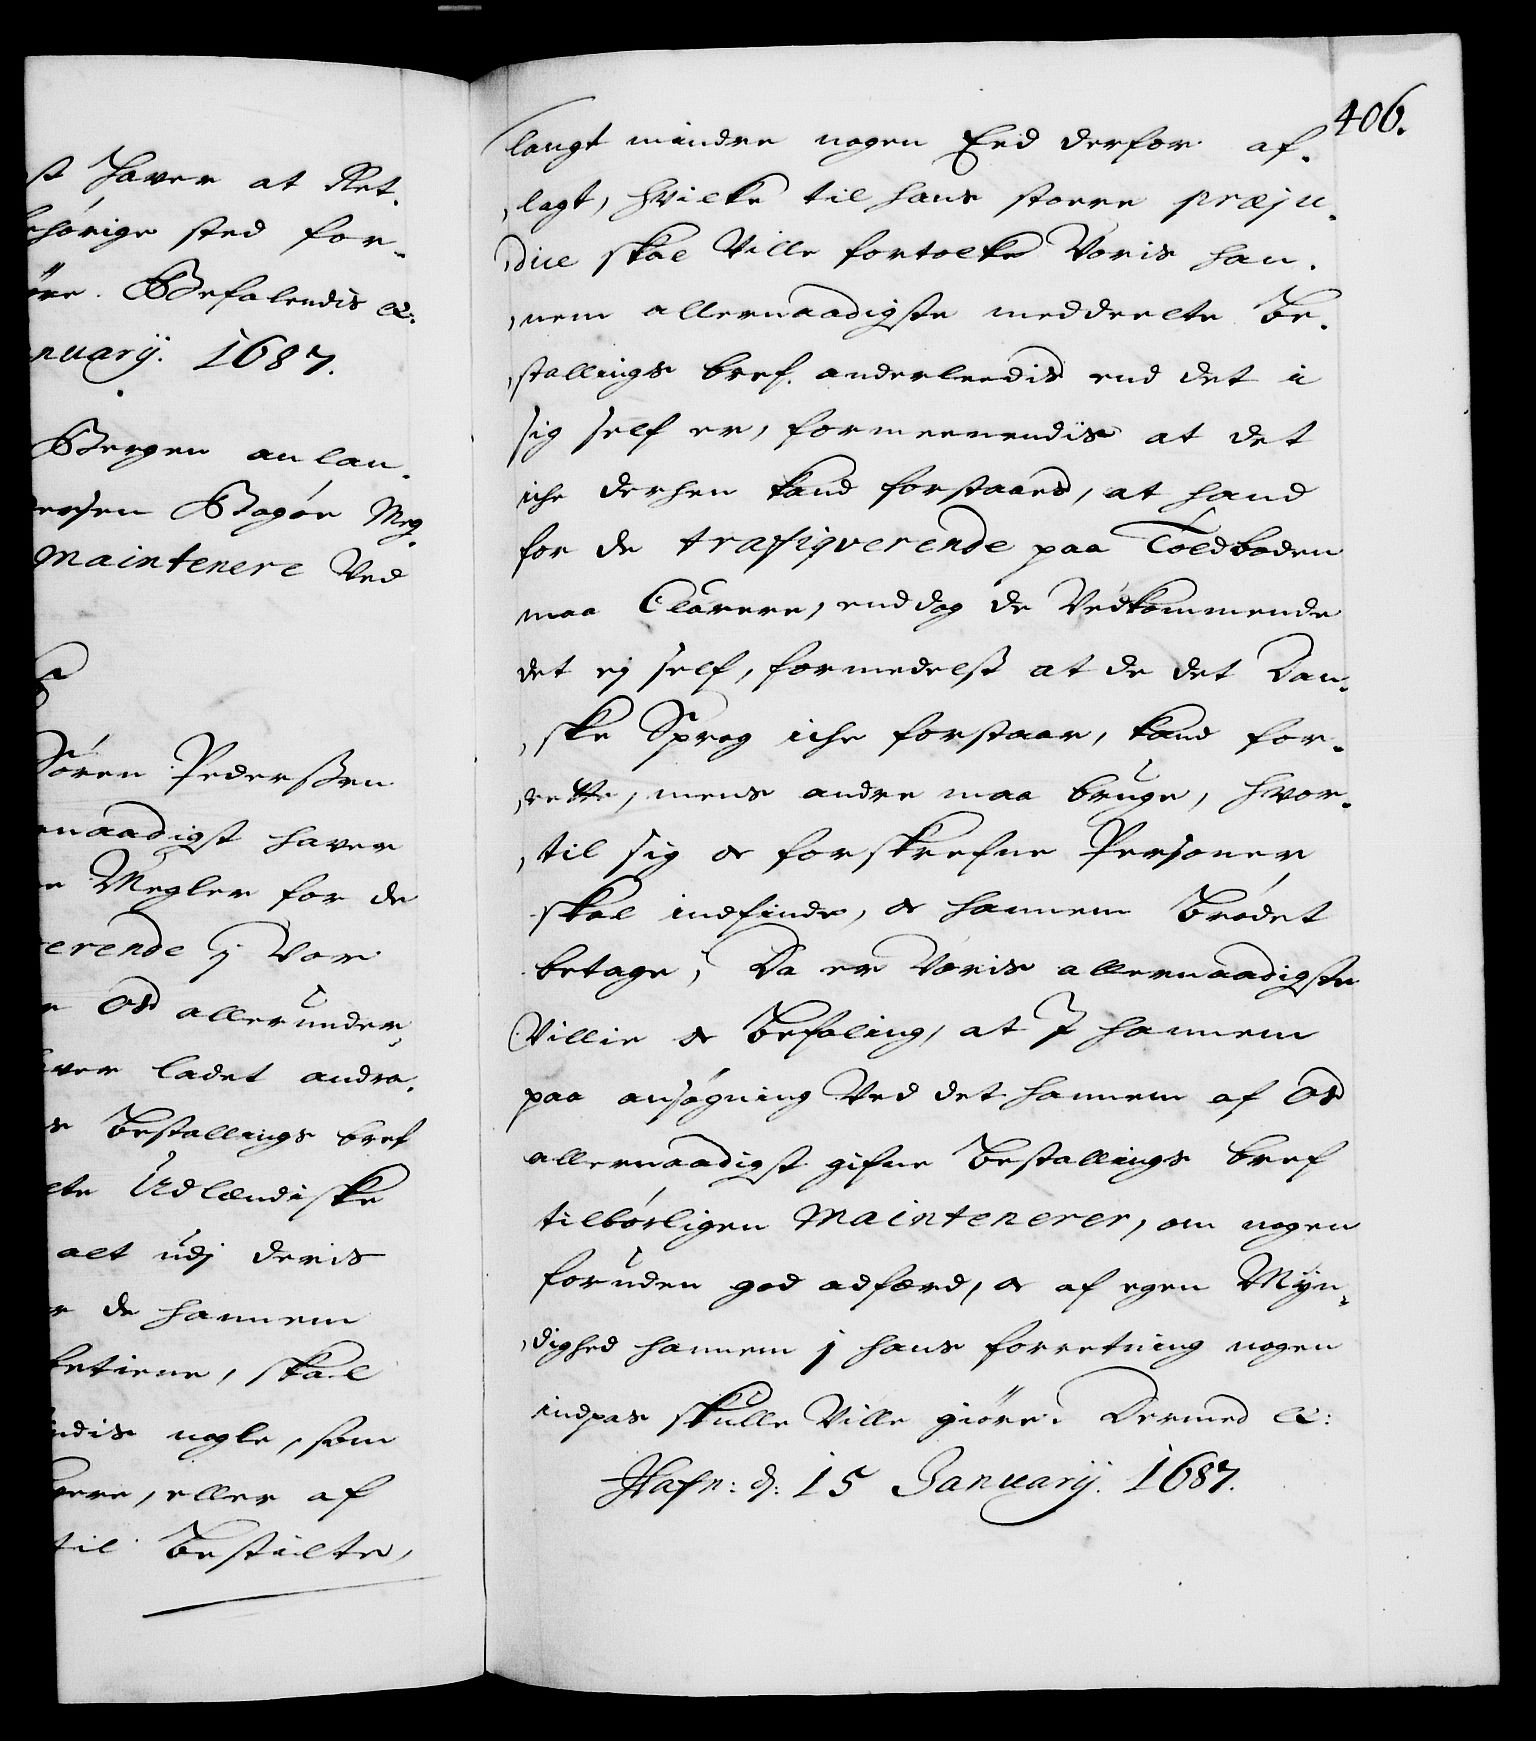 st haver at Ret-
ehörige sted for-
öre. Befalendis etc:
nuarij. 1687.
Bergen anlan-
dersen Bagöe Meg-
Maintenere Ved
Sören Pederssen
naadigst haver
e Megler for de
erende j Vor
e Os allerunder-
ver ladet andra-
s Bestallings bref
te Udlændiske
alt udj deris
r de hannem
betiene, skal
ndis nogle, som
gere, eller af
til Bestilte,
406.
langt mindre nogen Eed derfor af-
lagt, hvilke til hans store præju-
dice skal Ville fortolke Voris han-
nem allernaadigste meddeelte Be-
stallings bref. anderleedis end det i
sig self er, formeenendis at det
iche derhen kand forstaaes, at hand
for de trafiqverende paa Toldboden
maa Clarere, enddog de Vedkommende
det ej self, formedelst at de det Dan-
ske Sprog iche forstaar, kand for-
rette, mens andre maa bruge, hvor-
til sig & forskrefne Personer
skal indfinde, & hannem Brødet
betage; Da er Voris allernaadigste
Villie & Befaling, at I hannem
paa ansøgning Ved det hannem af Os
allernaadigst gifne Bestallings bref
tilbörligen Maintenerer, om nogen
foruden god adfærd, & af egen Myn-
dighed hannem j hans forretning nogen
indpas skulle Ville giöre. Dermed etc:
Hafn: d: 15 Januarij. 1687.